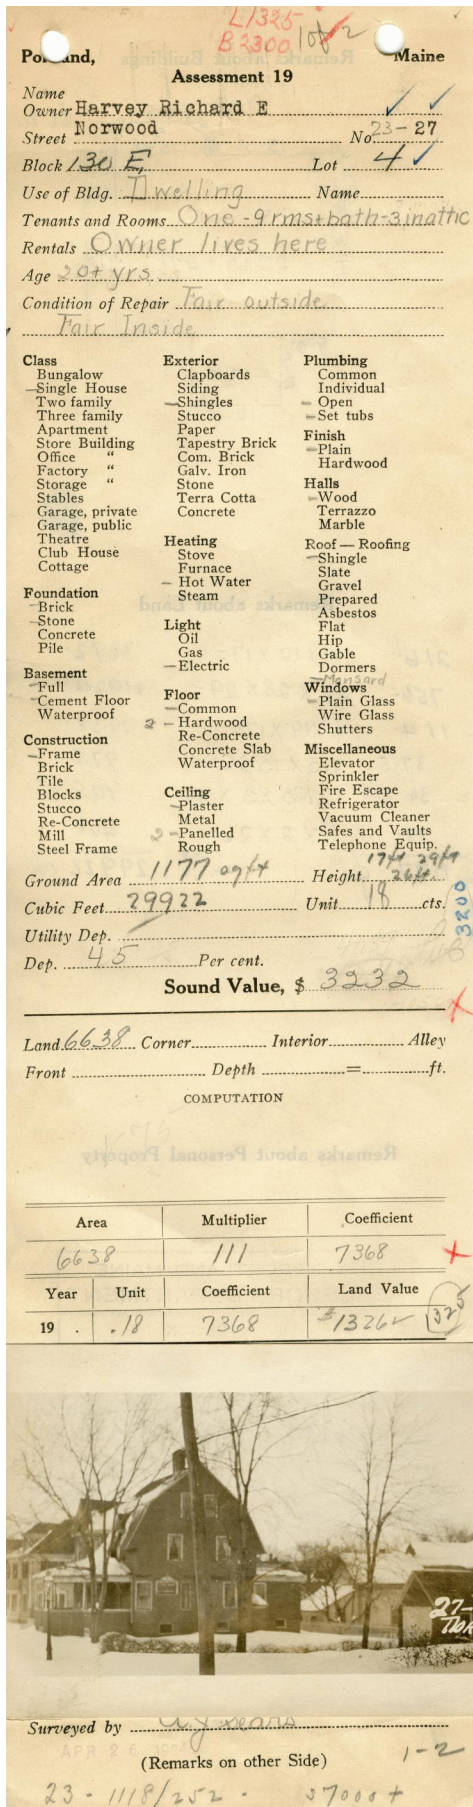 L1325
B2300 1 of 2
Portland, Maine
Assessment 19
Name
Owner Harvey Richard E
Street Norwood No 23-27
Block 130 E, Lot 4
Use of Bldg. Dwelling Name
Tenants and Rooms One-9rms+bath-3inattic
Rentals Owner lives here
Age 20+ yrs.
Condition of Repair Fair outside
Fair Inside
Class
Bungalow
Single House
Two family
Three family
Apartment
Store Building
Office "
Factory "
Storage "
Stables
Garage, private
Garage, public
Theatre
Club House
Cottage
Foundation
Brick
Stone
Concrete
Pile
Basement
Full
Cement Floor
Waterproof
Construction
Frame
Brick
Tile
Blocks
Stucco
Re-Concrete
Mill
Steel Frame
Exterior
Clapboards
Siding
Shingles
Stucco
Paper
Tapestry Brick
Com. Brick
Galv. Iron
Stone
Terra Cotta
Concrete
Heating
Stove
Furnace
Hot Water
Steam
Light
Oil
Gas
Electric
Floor
Common
2 - Hardwood
Re-Concrete
Concrete Slab
Waterproof
Ceiling
Plaster
Metal
2 - Panelled
Rough
Plumbing
Common
Individual
Open
Set tubs
Finish
Plain
Hardwood
Halls
Wood
Terrazzo
Marble
Roof — Roofing
Shingle
Slate
Gravel
Prepared
Asbestos
Flat
Hip
Gable
Dormers
Mansard
Windows
Plain Glass
Wire Glass
Shutters
Miscellaneous
Elevator
Sprinkler
Fire Escape
Refrigerator
Vacuum Cleaner
Safes and Vaults
Telephone Equip.
17ft 29ft
Ground Area 1177 sq ft Height 26ft.
Cubic Feet 29922 Unit 18 cts.
3200
Utility Dep.
Dep. 45 Per cent.
Sound Value, $ 3232
Land 6638 Corner Interior Alley
Front Depth = ft.
COMPUTATION
Area Multiplier Coefficient
6638 111 7368
Year Unit Coefficient Land Value
19 . .18 7368 $1326 1325
27-
Surveyed by
APR 26
(Remarks on other Side) 1-2
23 - 1118/252 - 37000+